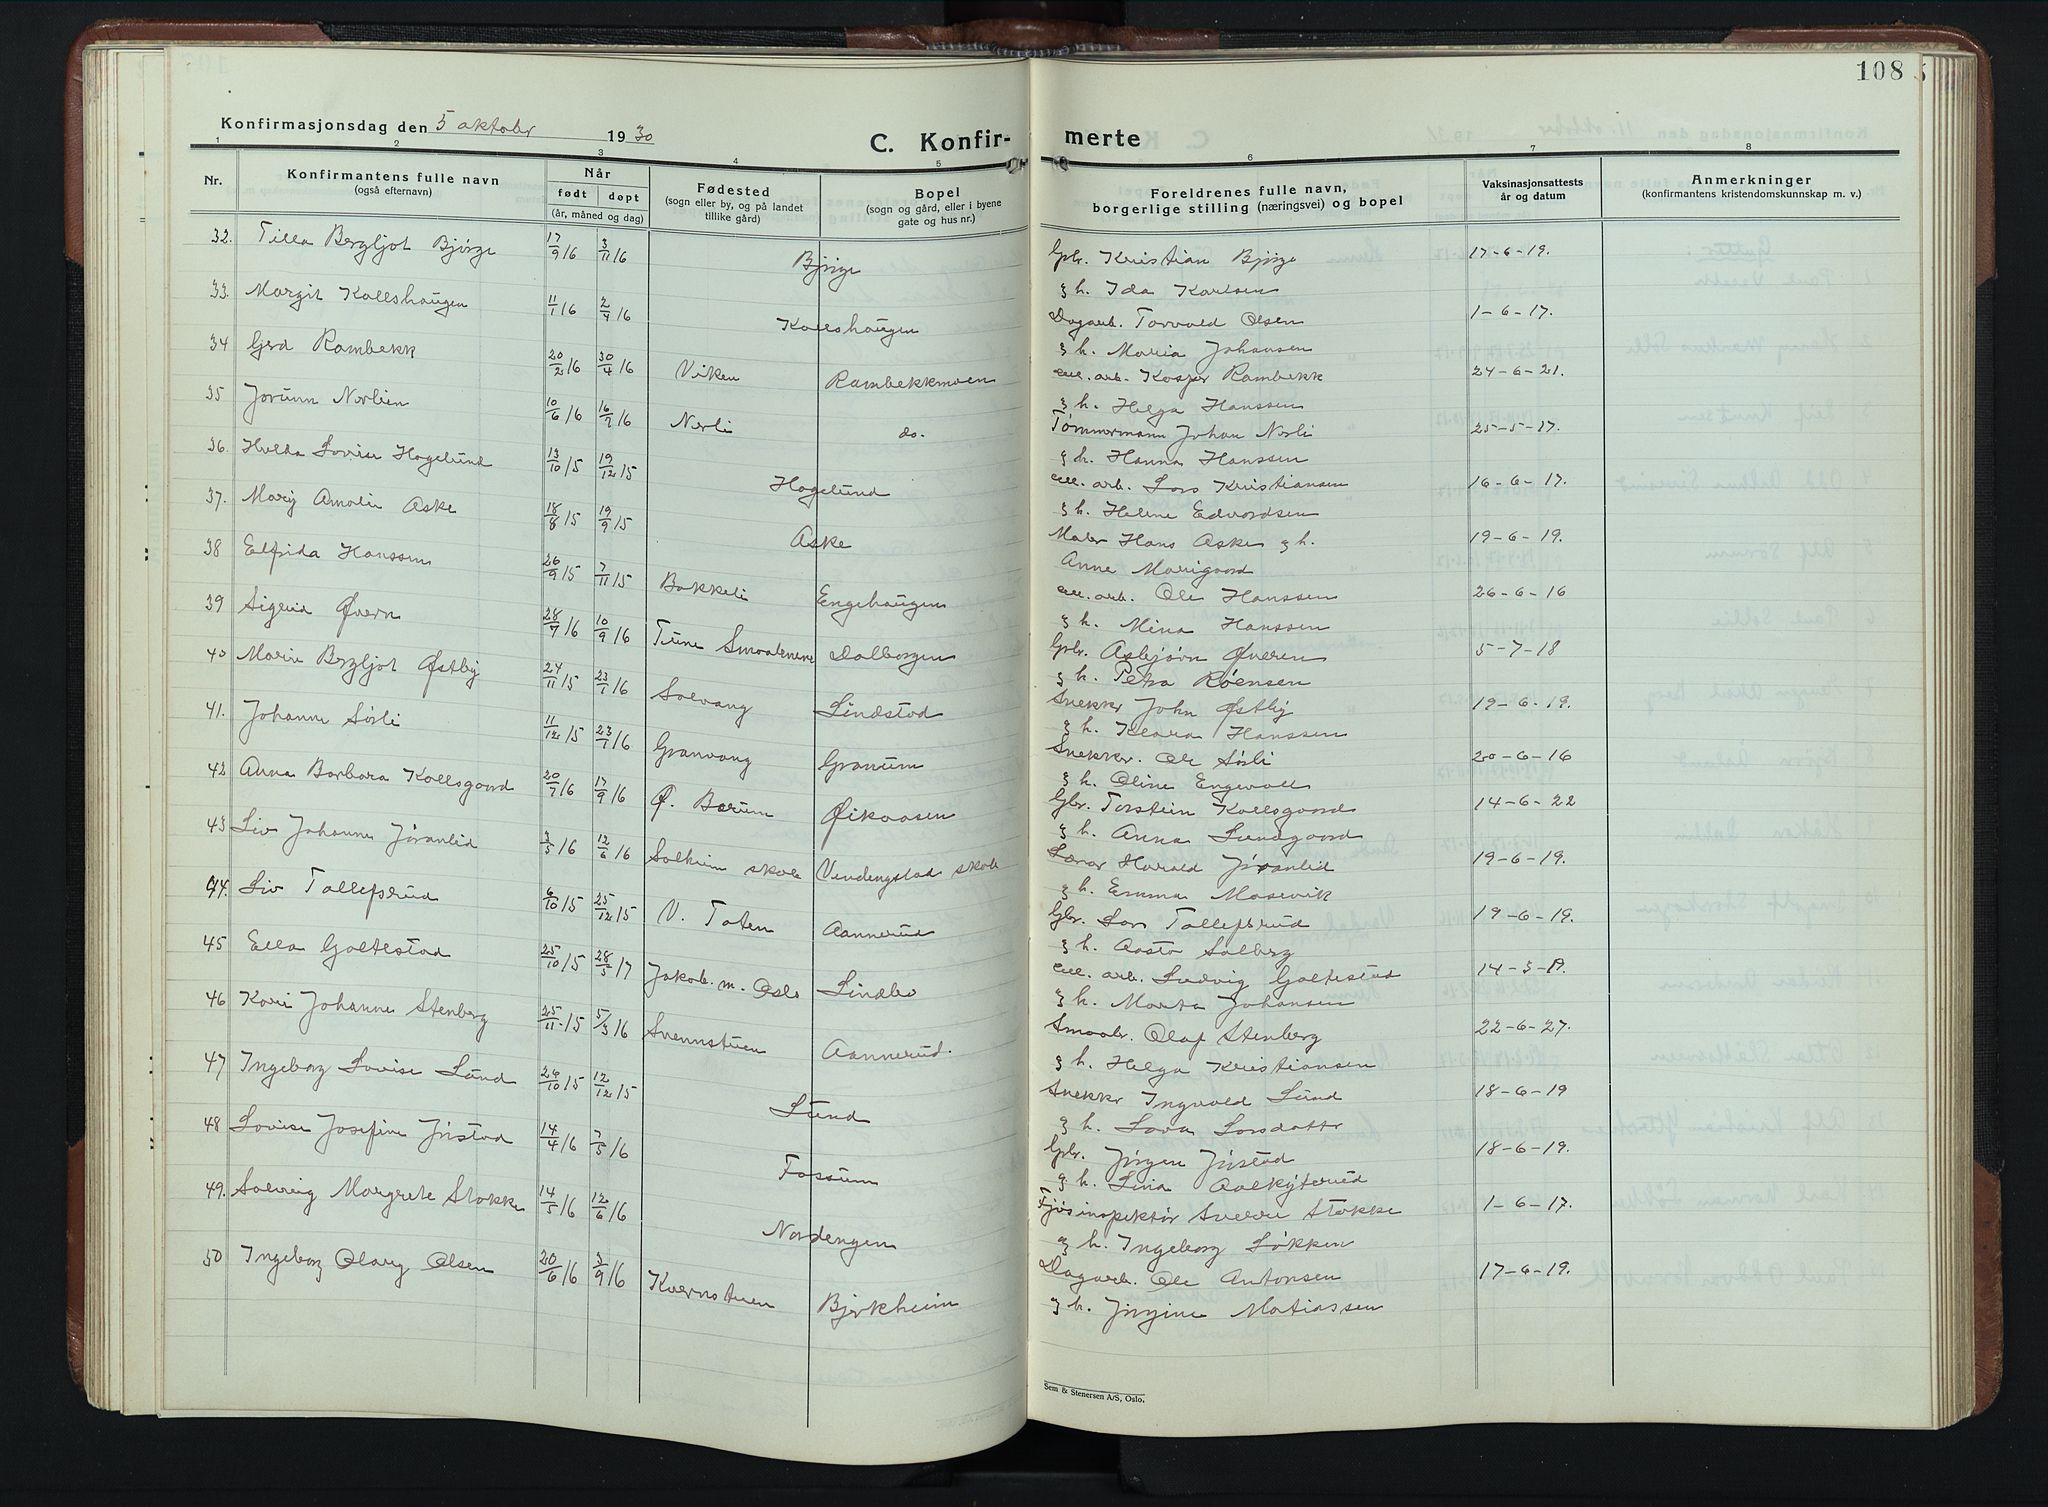 108
Konfirmasjonsdag den 5 oktober 1930
C. Konfir- merte
1 2 3 4 5 6 7 8
Nr. Konfirmantens fulle navn (også efternavn) Når født døpt (år, måned og dag) Fødested (sogn eller by, og på landet tillike gård) Bopel (sogn og gård, eller i byene gate og hus nr.) Foreldrenes fulle navn, borgerlige stilling (næringsvei) og bopel Vaksinasjonsattests år og datum Anmerkninger (konfirmantens kristendomskunnskap m. v.)
32. Tilla Bergljot Bjørge 17/9 16 3/11 16 Bjørge Gbr. Kristian Bjørge 17-6-19.
g h. Ida Karlsen
33. Margit Kollshaugen 11/1 16 2/4 16 Kollshaugen Dagarb. Torvald Olsen 1-6-17.
g h. Maria Johansen
34 Gerd Rambekk 20/2 16 30/4 16 Viken Rambekkmoen cell. arb. Kasper Rambekk 24-6-21.
g h. Helga Hanssen
35 Jorunn Nerlien 10/6 16 16/9 16 Nerli do. Tømmermann Johan Nerli 25-5-17.
g h. Hanna Hanssen
36. Hulda Lovise Hagelund 13/10 15 19/12 15 Hagelund cell. arb. Lars Kristiansen 16-6-17.
g h. Helene Edvardsen
37. Mary Amalie Aske 18/8 15 19/9 15 Aske Maler Hans Aske g h. 19-6-19.
Anne Marigaard
38 Elfrida Hanssen 26/9 15 7/11 15 Bakkeli Engehaugen cell. arb. Ole Hanssen 26-6-16
g h. Mina Hanssen
39 Sigrid Øvern 28/7 16 10/9 16 Tune Smaalenene Dalborgen Gbr. Asbjørn Øveren 5-7-18
g h. Petra Røensen
40 Marie Bergljot Østby 24/11 15 23/1 16 Solvang Lindstad Snekker John Østby 19-6-19.
g h. Klara Hanssen
41. Johanne Sørli 11/12 15 23/1 16 Granvang Granum Snekker. Ole Sørli 20-6-16
g h. Oline Engevoll
42 Anna Barbara Kollsgaard 20/7 16 17/9 16 Ø. Berum Øikaasen Gbr. Torstein Kollsgaard 14-6-22
g h. Anna Lundgaard
43 Liv Johanne Jøranlid 3/5 16 12/6 16 Solheim skole Vendengstad skole Lærer Harald Jøranlid 19-6-19.
g h. Emma Masevik
44. Liv Tollefsrud 6/10 15 25/12 15 V. Toten Aannerud Gbr. Lars Tollefsrud 19-6-19.
g h. Aasta Solberg
45 Ella Galtestad 25/10 15 28/5 17 Jakob. m. Oslo Lindbo cell. arb. Ludvig Galtestad
g h. Marta Johansen
46 Kari Johanne Stenberg 25/11 15 5/3 16 Svennstuen Aannerud. Smaabr. Olaf Stenberg 22-6-27.
g h. Helga Kristiansen
47 Ingeborg Lovise Lund 26/10 15 12/12 15 Lund Snekker Ingvald Lund 18-6-19
g h. Lova Larsdatter
48 Lovise Josefine Jøstad 14/4 16 7/5 16 Fossum Gbr. Jørgen Jøstad 18-6-19.
g h. Lina
49. Solveig Margrete Stokke 14/5 16 12/6 16 Nordengen Fjøsinspektør Sverre Stokke 1-6-17.
g h. Ingeborg Løkken
50 Ingeborg Olaug Olsen 20/6 16 3/9 16 Kvernstuen Bjerkheim Dagarb. Ole Antonsen 17-6-19.
g h. Jørgine Matiassen
Sem & Stenersen A/S, Oslo.